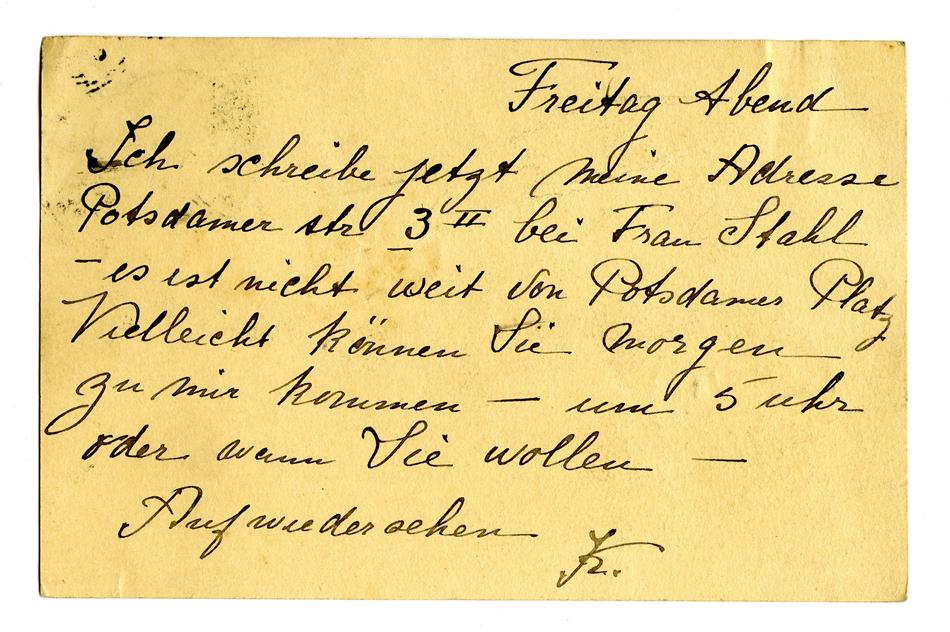 Freitag Abend
Ich schreibe jetzt meine Adresse
Potsdamer str 3 II bei Frau Stahl
– es ist nicht weit von Potsdamer Platz
Vielleicht können Sie morgen
zu mir kommen — um 5 uhr
oder wann Sie wollen —
Auf wiedersehen